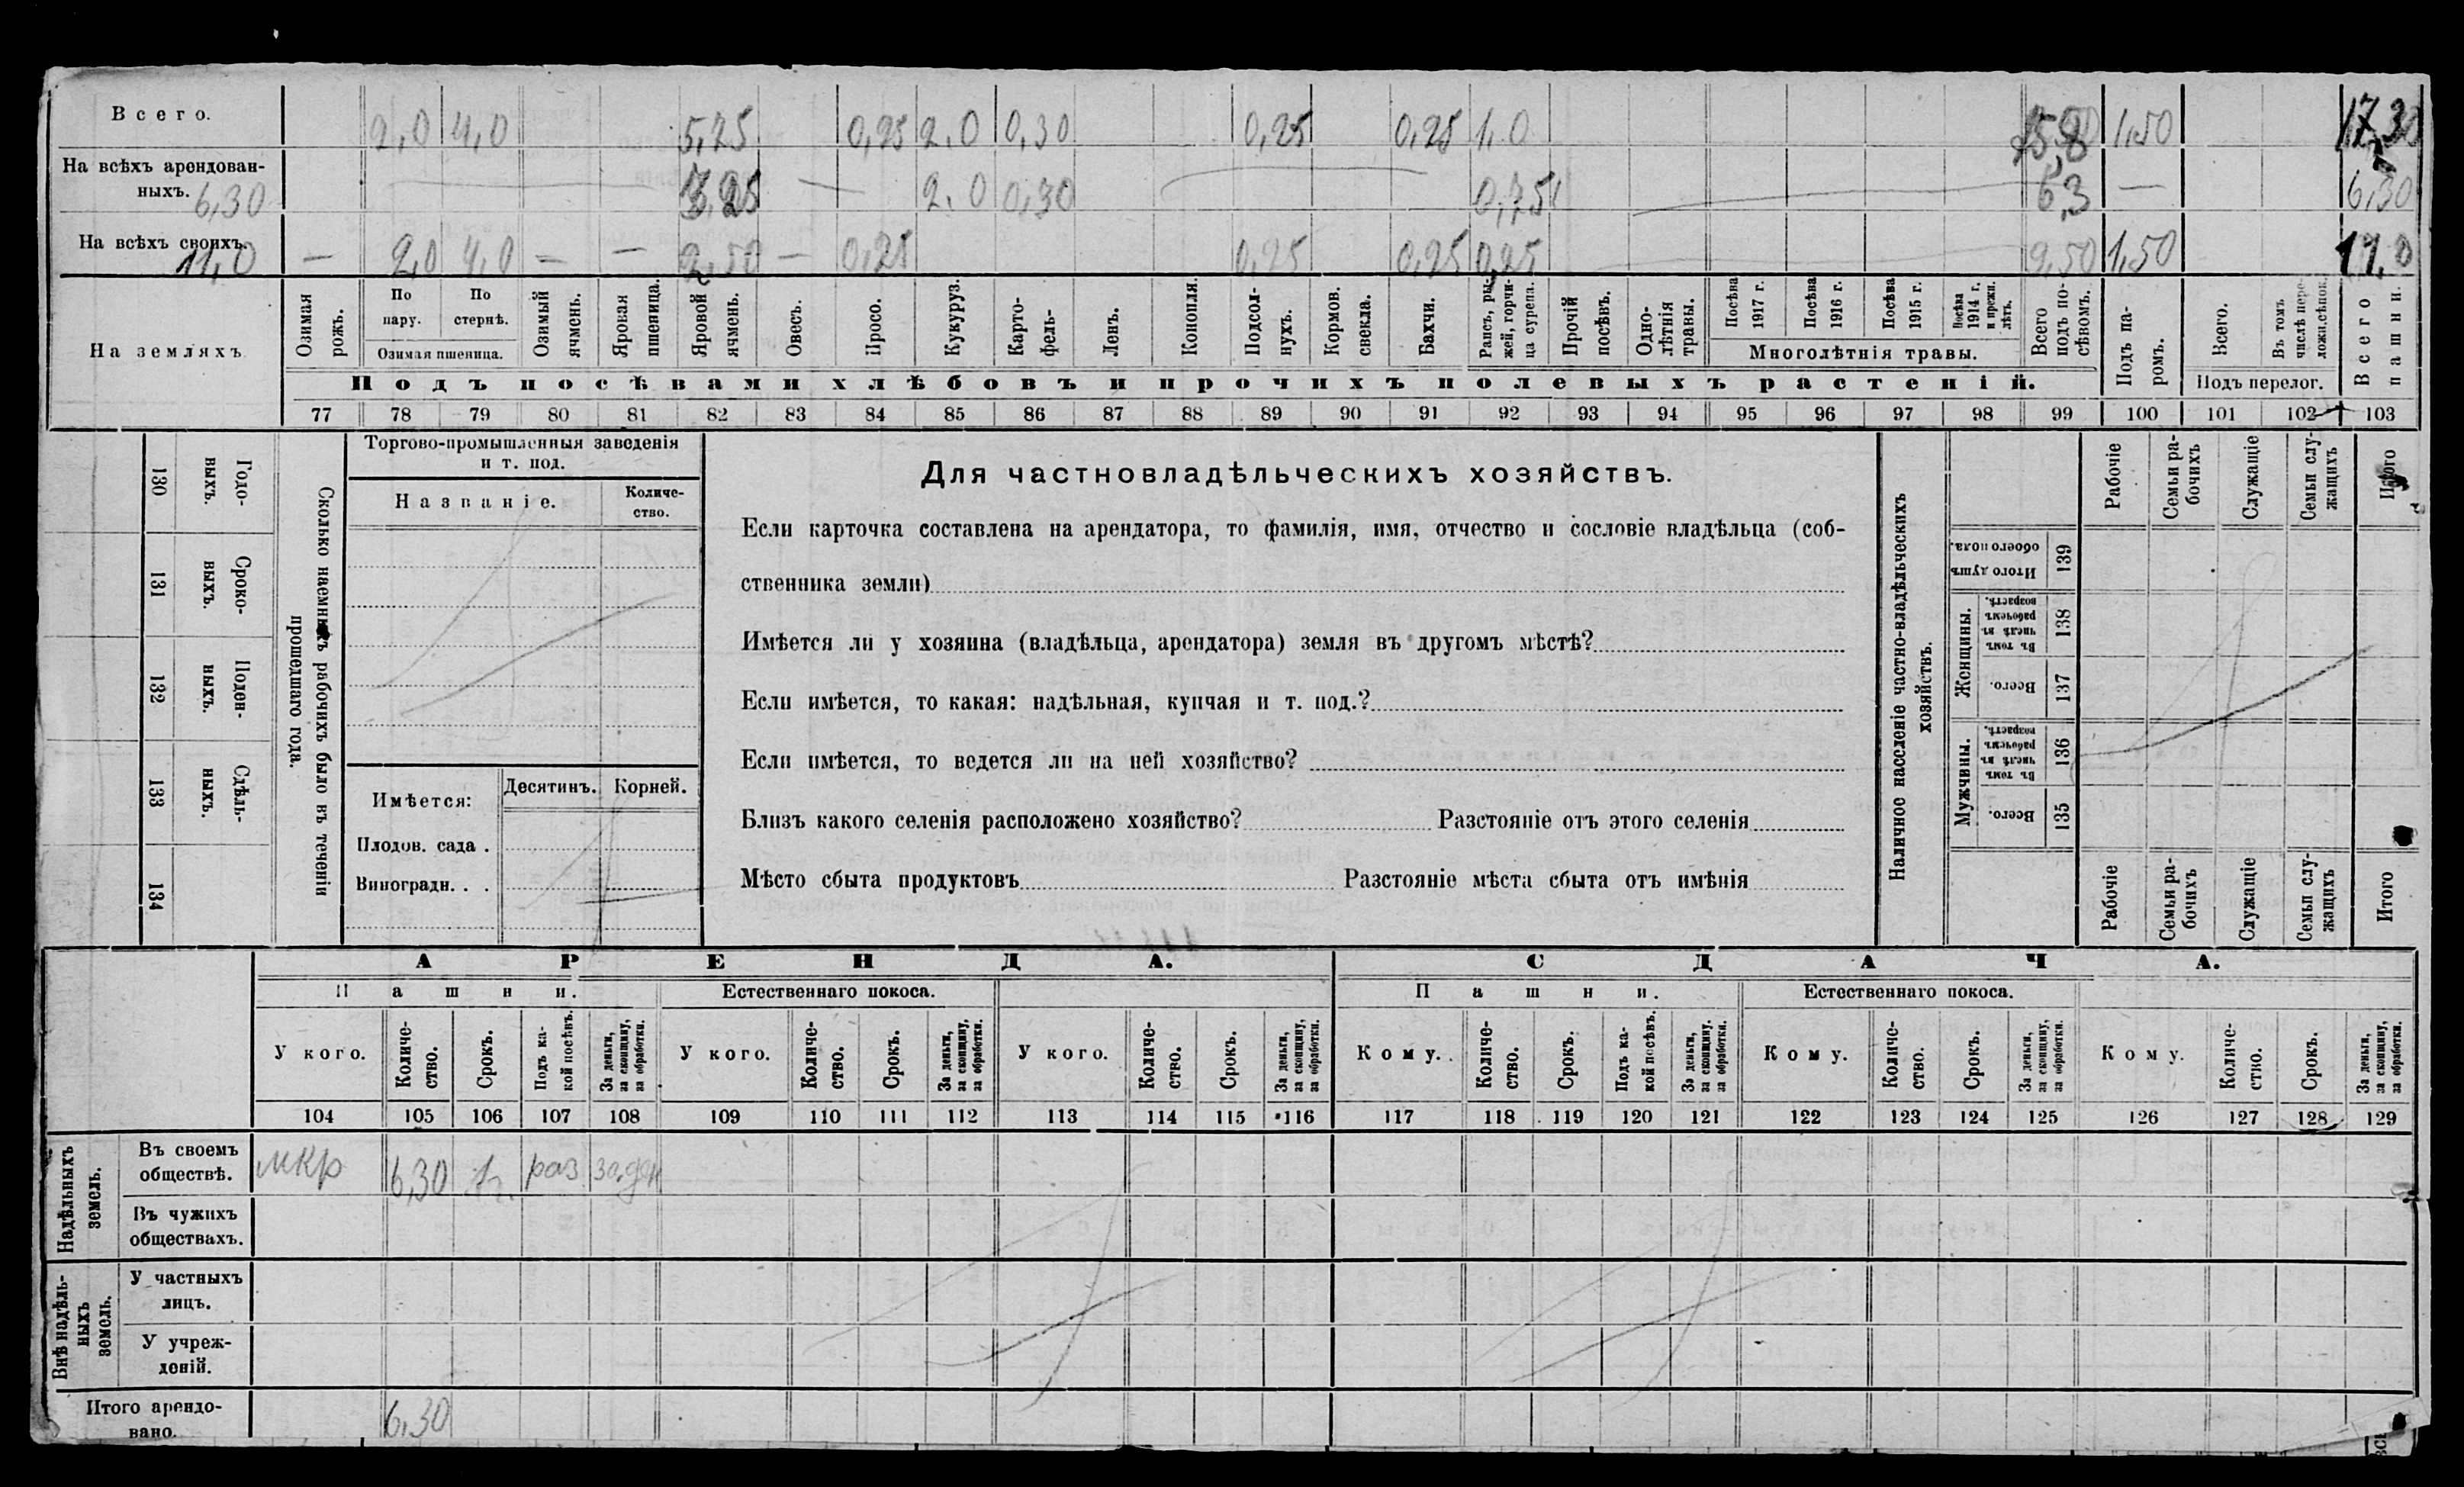 Всего. 2,0 4,0 5,75 0,25 2.0 0,30 0,25 0,25 1,0 1,50 17,30
На всѣхъ арендован-
ныхъ. 6,30 3,25 2.0 0,30 0,75 6,3 — 6,30
На всѣхъ своихъ. 11,0 — 2,0 4,0 — — 2,50 — 0,25 0,25 0,25 0,25 9,50 1,50 11,0
На земляхъ
Озимая
рожь.
По
пару.
По
стернѣ.
Озимая пшеница.
Озимый
ячмень.
Яровая
пшеница.
Яровой
ячмень.
Овесъ.
Просо.
Кукуруз.
Карто-
фель-
Ленъ.
Конопля.
Подсол-
нухъ.
Кормов.
свекла.
Бахчи.
Рапсъ, ры-
жей, горчи-
ца сурепа.
Прочій
посѣвъ.
Одно-
лѣтнія
травы.
Посѣва
1917 г.
Посѣва
1916 г.
Посѣва
1915 г.
Посѣва
1914 г.
и прежн.
лѣтъ.
Многолѣтнія травы.
Всего
подъ по-
сѣвомъ.
Подъ па-
ромъ.
Всего.
Въ томъ
числѣ пере-
ложи.сѣнок.
Подъ перелог.
Всего
пашни.
Подъ посѣвами хлѣбовъ и прочихъ полевыхъ растеній.
77 78 79 80 81 82 83 84 85 86 87 88 89 90 91 92 93 94 95 96 97 98 99 100 101 102 103
130
Годо-
выхъ.
131
Сроко-
выхъ.
132
Поден-
ныхъ.
133
Сдѣль-
ныхъ.
134
Сколько наемныхъ рабочихъ было въ теченіи
прошедшаго года.
Торгово-промышленныя заведенія
и т. под.
Названіе.
Количе-
ство.
Имѣется: Десятинъ. Корней.
Плодов. сада .
Виноградн. . .
Для частновладѣльческихъ хозяйствъ.
Если карточка составлена на арендатора, то фамилія, имя, отчество и сословіе владѣльца (соб-
ственника земли)
Имѣется ли у хозяина (владѣльца, арендатора) земля въ другомъ мѣстѣ?
Если имѣется, то какая: надѣльная, купчая и т. под.?
Если имѣется, то ведется ли на ней хозяйство?
Близъ какого селенія расположено хозяйство? Разстояніе отъ этого селенія
Мѣсто сбыта продуктовъ Разстояніе мѣста сбыта отъ имѣнія
Наличное населеніе частно-владѣльческихъ
хозяйствъ.
Рабочіе
Семьи ра-
бочихъ
Служащіе
Семьи слу-
жащихъ
Итого
Итого душъ
обоего пола.
139
Женщины.
Въ томъ
числѣ въ
рабочемъ
возрастѣ.
138
Всего.
137
Мужчины.
Въ томъ
числѣ въ
рабочемъ
возрастѣ.
136
Всего.
135
Рабочіе
Семьи ра-
бочихъ
Служащіе
Семьи слу-
жащихъ
Итого
АРЕНДА. СДАЧА.
Пашни. Естественнаго покоса. Пашни. Естественнаго покоса.
У кого.
Количе-
ство.
Срокъ.
Подъ ка-
кой посѣвъ.
За деньги,
за скопщину,
за обработки.
У кого.
Количе-
ство.
Срокъ.
За деньги,
за скопщину,
за обработки.
У кого.
Количе-
ство.
Срокъ.
За деньги,
за скопщину,
за обработки.
Кому.
Количе-
ство.
Срокъ.
Подъ ка-
кой посѣвъ.
За деньги,
за скопщину,
за обработки.
Кому.
Количе-
ство.
Срокъ.
За деньги,
за скопщину,
за обработки.
Кому.
Количе-
ство.
Срокъ.
За деньги,
за скопщину,
за обработки.
104 105 106 107 108 109 110 111 112 113 114 115 116 117 118 119 120 121 122 123 124 125 126 127 128 129
Надѣльныхъ
земель.
Въ своемъ
обществѣ.
мкр 6,30 1г. раз за ден
Въ чужихъ
обществахъ.
Внѣ надѣль-
ныхъ
земель.
У частныхъ
лицъ.
У учреж-
деній.
Итого арендо-
вано. 6,30